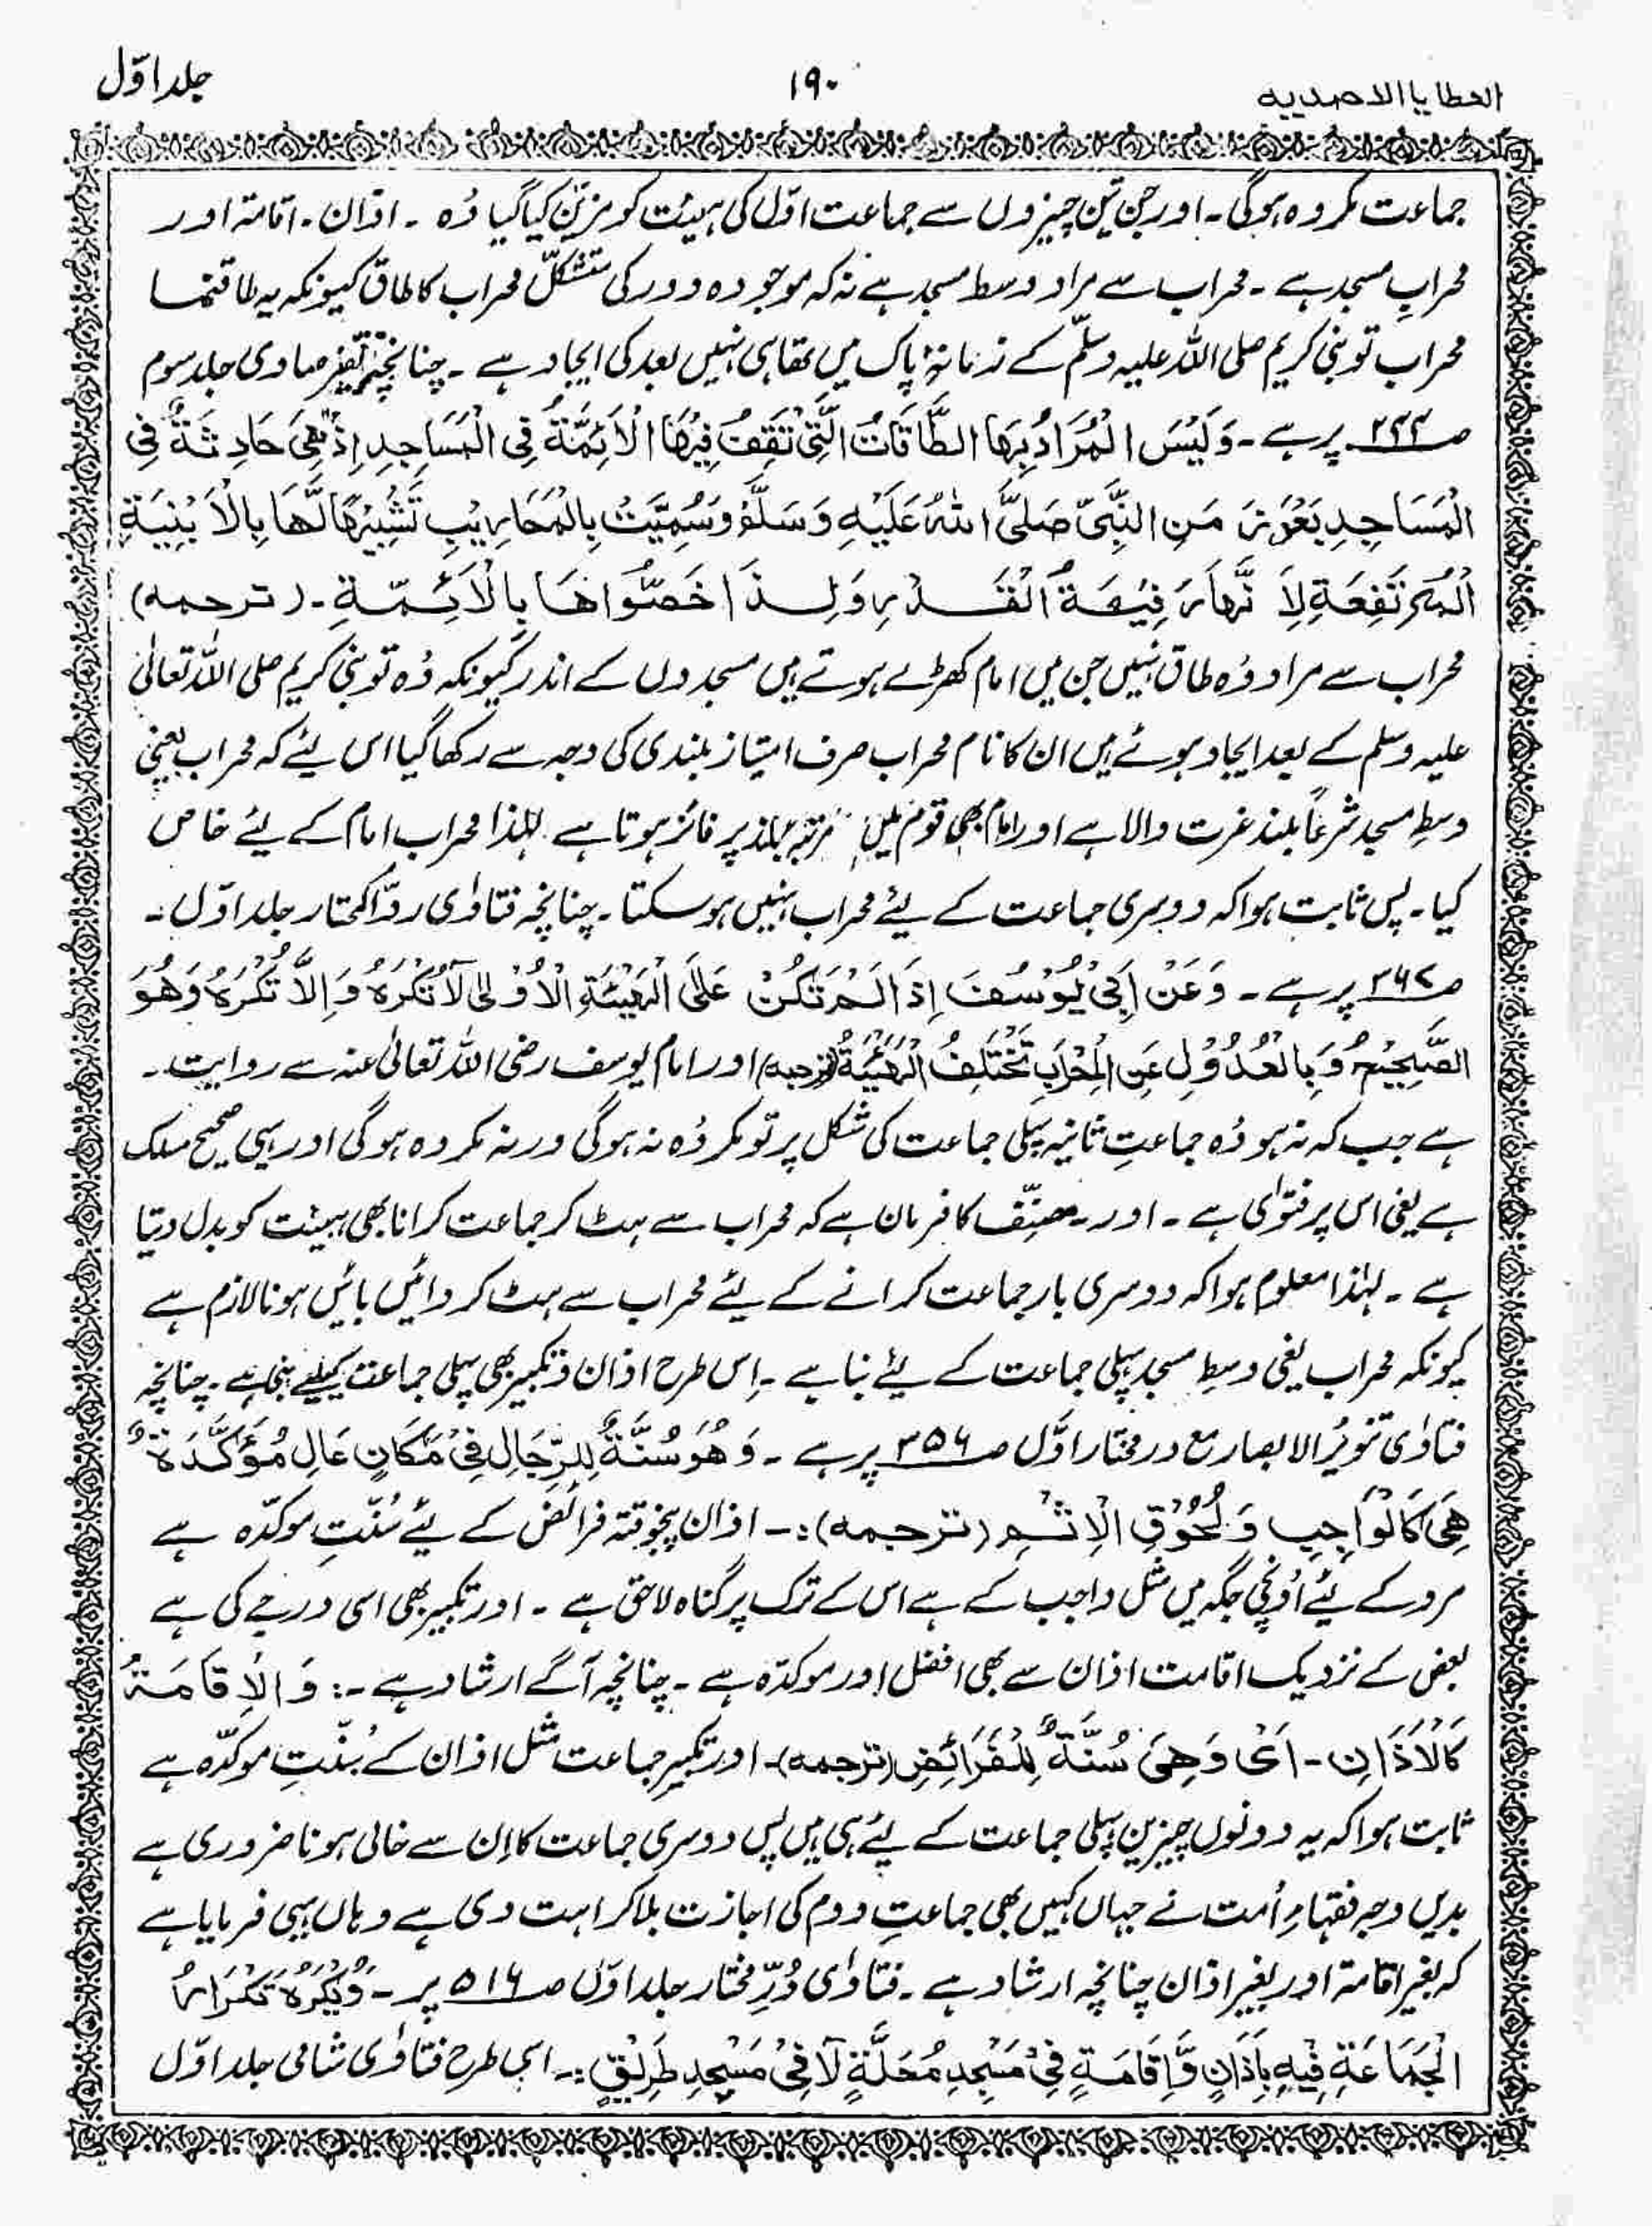 العطایا الاحمدیہ ۱۹۰ جلد اوّل
جماعت مکروہ ہوگی۔ اور جن تین چیزوں سے جماعت اوّل کی ہیئت کو مزین کیا گیا وُہ ۔ اذان ۔ اقامۃ اور
محرابِ مسجد ہے ۔ محراب سے مراد وسط مسجد ہے نہ کہ موجودہ دور کی متشکلّ محراب کا طاق کیونکہ یہ طاقنما
محراب تو نبی کریم صلی اللہ علیہ وسلّم کے زمانۂ پاک میں تھا ہی نہیں بعد کی ایجاد ہے ۔ چنانچہ تفسیر صاوی جلد سوم
صـ۲۳۳ پر ہے ۔ وَلَیْسَ الْمُرَادُ بِہَا الطَّاقَاتُ الَّتِیْ تَقِفُ فِیْہَا الْاَئِمَّةُ فِی الْمَسَاجِدِ اِذْ ھِیَ حَادِثَةٌ فِی
الْمَسَاجِدِ بَعْدَ زَمَنِ النَّبِیِّ صَلَّی اللہُ عَلَیْہِ وَسَلَّمَ وَسُمِّیَتْ بِالْمَحَارِیْبِ تَشْبِیْہًا لَّہَا بِالْاَبْنِیَةِ
الْمُرْتَفِعَةِ لِاَ نَّہَا رَفِیْعَةُ الْقَدْرِ وَلِذَا خَصُّوْاھَا بِالْاَئِمَّةِ ۔ (ترجمہ)
محراب سے مراد وُہ طاق نہیں جن میں امام کھڑے ہوتے ہیں مسجدوں کے اندر کیونکہ وُہ تو نبی کریم صلی اللہ تعالیٰ
علیہ وسلم کے بعد ایجاد ہوئے ہیں ان کا نام محراب صرف امتیاز بلندی کی وجہ سے رکھا گیا اس لیئے کہ محراب یعنی
وسطِ مسجد شرعاً بلند عزت والا ہے اور امام بھی قوم میں مرتبۂ بلند پر فائز ہوتا ہے لہٰذا محراب امام کے لیئے خاص
کیا۔ پس ثابت ہوا کہ دوسری جماعت کے لیئے محراب نہیں ہوسکتا ۔ چنانچہ فتاوٰی ردّ المحتار جلد اوّل :۔
صـ۳۶۷ پر ہے ۔ وَعَنْ اَبِیْ یُوْسُفَ اِذَا لَمْ تَکُنْ عَلَی الْہَیْئَةِ الْاُوْلٰی لَا تُکْرَہُ وَاِلَّا تُکْرَہُ وَھُوَ
الصَّحِیْحُ وَبِالْعُدُوْلِ عَنِ الْمِحْرَابِ تَخْتَلِفُ الْہَیْئَةُ (ترجمہ) اور امام یوسف رضی اللہ تعالیٰ عنہ سے روایت ۔
ہے جب کہ نہ ہو وُہ جماعتِ ثانیہ پہلی جماعت کی شکل پر تو مکروُہ نہ ہوگی ورنہ مکروہ ہوگی اور یہی صحیح مسلک
ہے یعنی اس پر فتوٰی ہے ۔ اور ۔ مصنّف کا فرمان ہے کہ محراب سے ہٹ کر جماعت کرانا بھی ہیئت کو بدل دیتا
ہے ۔ لہٰذا معلوم ہوا کہ دوسری بار جماعت کرانے کے لیئے محراب سے ہٹ کر دائیں بائیں ہونا لازم ہے
کیونکہ محراب یعنی وسطِ مسجد پہلی جماعت کے لیئے بنا ہے ۔ اِس طرح اذان و تکبیر بھی پہلی جماعت کیلئے بنی ہے ۔ چنانچہ
فتاوٰی تنویرُ الابصار مع درمختار اوَّل صـ۳۵۶ پر ہے ۔ وَھُوَ سُنَّةٌ لِلرِّجَالِ فِیْ مَکَانٍ عَالٍ مُؤَکَّدَةٌ
ھِیَ کَالْوَاجِبِ وَلُحُوْقِ الْاِثْمِ (ترجمہ) :۔ اذان پنجوقتہ فرائض کے لیئے سُنّتِ موکدّہ ہے
مرد کے لیئے اُونچی جگہ میں مثل واجب کے ہے اس کے ترک پر گناہ لاحق ہے ۔ اور تکبیر بھی اسی درجے کی ہے
بعض کے نزدیک اقامت اذان سے بھی افضل اور موکدّہ ہے ۔ چنانچہ آگے ارشاد ہے :۔ وَالْاِقَامَةُ
کَالْاَذَانِ ۔ اَیْ وَھِیَ سُنَّةٌ لِلْفَرَائِضِ (ترجمہ) ۔ اور تکبیرِ جماعت مثل اذان کے سُنّتِ موکدّہ ہے
ثابت ہوا کہ یہ دونوں چیزیں پہلی جماعت کے لیئے ہی ہیں پس دوسری جماعت کا اِن سے خالی ہونا ضروری ہے
بدیں وجہ فقہاءِ اُمت نے جہاں کہیں بھی جماعتِ دوم کی اجازت بلا کراہت دی ہے وہاں یہی فرمایا ہے
کہ بغیر اقامۃ اور بغیر اذان چنانچہ ارشاد ہے ۔ فتاوٰی دُرِّ مختار جلد اوّل صـ۵۱۶ پر ۔ وَیُکْرَہُ تَکْرَارُ
الْجَمَاعَةِ فِیْہِ بِاَذَانٍ وَّاِقَامَةٍ فِیْ مَسْجِدِ مُحَلَّةٍ لَا فِیْ مَسْجِدِ طَرِیْقٍ :۔ اسی طرح فتاوٰی شامی جلد اوّل